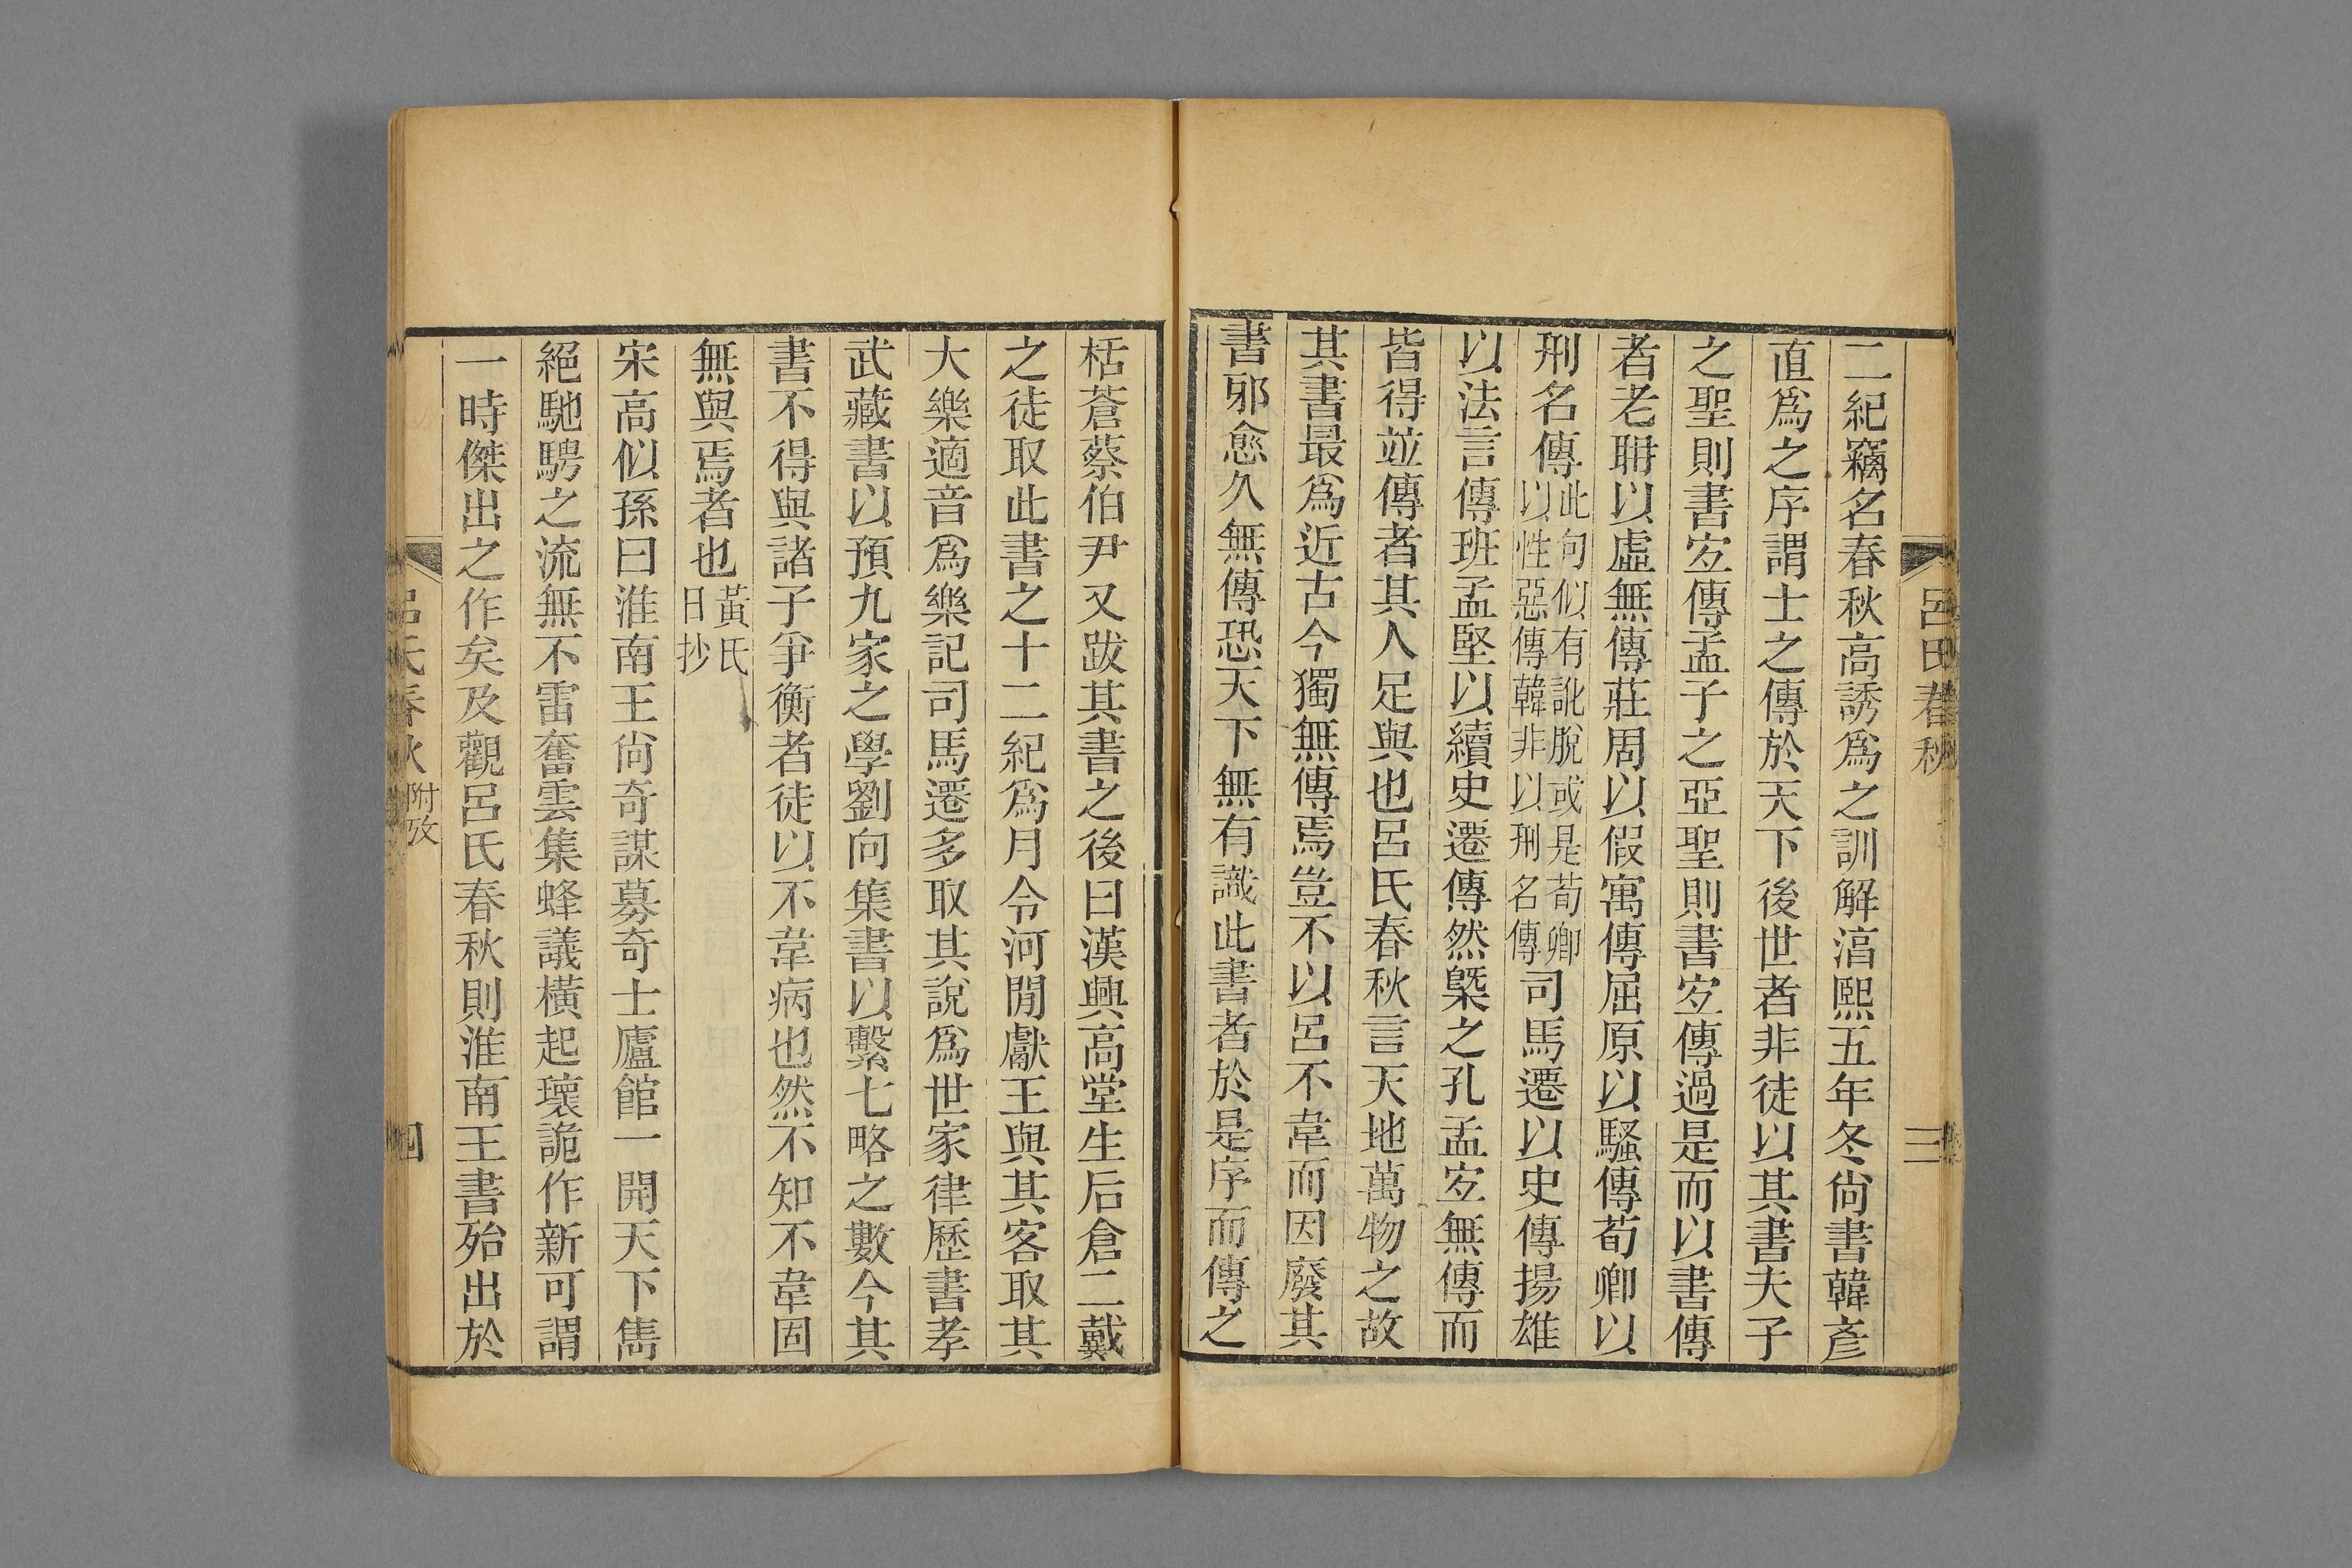 呂氏春秋
三
二紀竊名春秋高誘爲之訓解淯熙五年冬尙書韓彥
直爲之序謂士之傳於天下後世者非徒以其書夫子
之聖則書宐傳孟子之亞聖則書宐傳過是而以書傳
者老耼以虛無傳莊周以假寓傳屈原以騷傳荀卿以
刑名傳此句似有訛脫或是荀卿以性惡傳韓非以刑名傳司馬遷以史傳揚雄
以法言傳班孟堅以續史遷傳然槩之孔孟宐無傳而
皆得並傳者其人足與也呂氏春秋言天地萬物之故
其書最爲近古今獨無傳焉豈不以呂不韋而因廢其
書邪愈久無傳恐天下無有識此書者於是序而傳之
栝蒼蔡伯尹又跋其書之後曰漢興高堂生后倉二戴
之徒取此書之十二紀爲月令河閒獻王與其客取其
大樂適音爲樂記司馬遷多取其說爲世家律歷書孝
武藏書以預九家之學劉向集書以繫七略之數今其
書不得與諸子爭衡者徒以不韋病也然不知不韋固
無與焉者也黃氏日抄
宋高似孫曰淮南王尙奇謀募奇士廬館一開天下雋
絕馳騁之流無不雷奮雲集蜂議橫起瓌詭作新可謂
一時傑出之作矣及觀呂氏春秋則淮南王書殆出於
呂氏春秋附攷
四